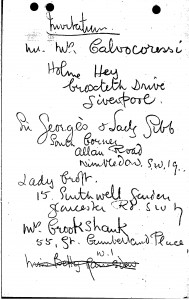 Invitation.
Mr. Mrs. Calvocoressi
Holme Hey
Croxteth Drive
Liverpool.
Sir George & Lady
South Corner
Allan Road
Wimbledon, S.W.19.
Lady Croft.
15, Southwell Gardens
Gloucester Rd. S.W.7
Mr. Crookshank
55, Gt. Cumberland Place
W.1
Miss Betty